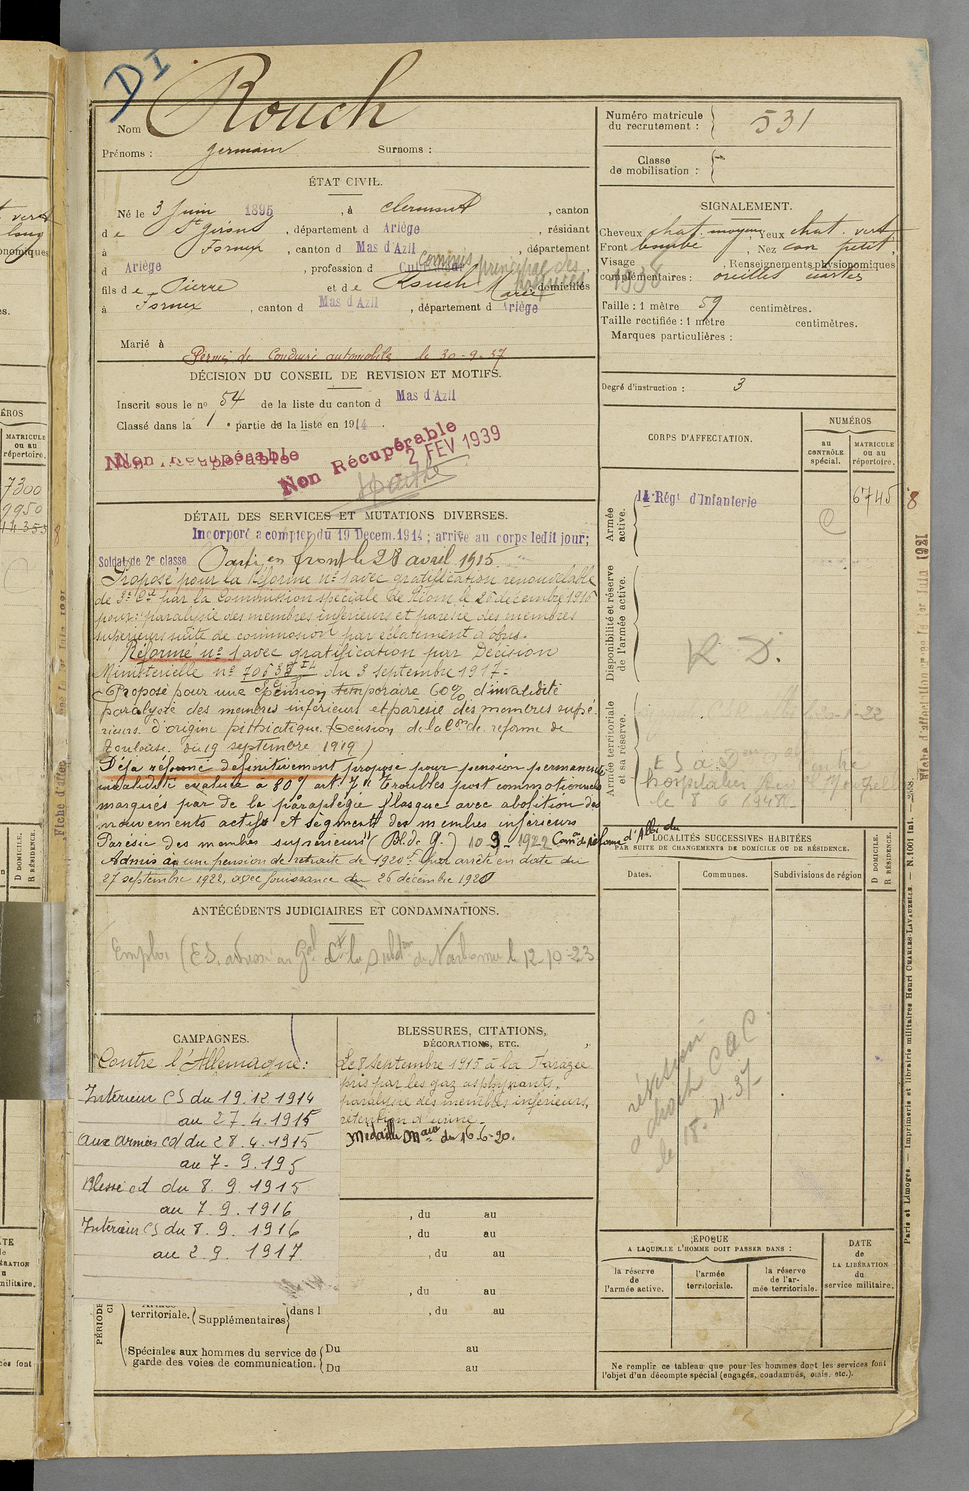 DI
Nom Rouch
Prénoms : Germain Surnoms :
ÉTAT CIVIL.
Né le 3 Juin 1895, à Clermont, canton
d e St Girons, département d Ariège, résidant
à Fornex, canton d Mas d'Azil, département
d Ariège, profession d Cultivateur commis principal des
fils d e Pierre et d e Rouch Marie domiciliés
à Fornex, canton d Mas d'Azil, département d Ariège
Marié à
Permis de Conduire automobile le 30-9-37
DÉCISION DU CONSEIL DE REVISION ET MOTIFS.
Inscrit sous le no 54 de la liste du canton d Mas d'Azil
Classé dans la 1e partie de la liste en 1914.
Non Récupérable
Non Récupérable
2 FEV 1939
DÉTAIL DES SERVICES ET MUTATIONS DIVERSES.
Incorporé a compter du 19 Decem. 1914 ; arrive au corps ledit jour ;
Soldat de 2e classe Parti en front le 28 avril 1915.
Proposé pour la Réforme no 1 avec gratification renouvelable
de 3e Cat par la Commission spéciale de Riom le 26 décembre 1916
pour : paralysie des membres inférieurs et parésie des membres
supérieurs suite de commotion par éclatement d'obus.
Réformé no 1 avec gratification par Décision
Ministérielle no du 3 septembre 1917.
Proposé pour une pension temporaire 60% d'invalidité
paralysie des membres inférieurs et parésie des membres supé-
rieurs d'origine pithiatique. (Décision de la Con de réforme de
Toulouse du 19 septembre 1919)
Déjà réformé définitivement proposé pour pension permanente
invalidité évaluée à 80% art 7 "Troubles post commotionnels
marqués par de la paraplégie flasque avec abolition des
mouvements actifs et segments des membres inférieurs
Parésie des membres supérieurs" (Bl. de G.) 10-3-1922 Com. de réforme d'Albi du
Admis à une pension de retraite de 1920f par arrêté en date du
27 septembre 1922, avec jouissance du 26 décembre 1920
ANTÉCÉDENTS JUDICIAIRES ET CONDAMNATIONS.
Emploi (ES, adressé au Gal Ct la Subdon de Narbonne le 12-10-23
CAMPAGNES.
Contre l'Allemagne :
Intérieur CS du 19.12.1914
au 27.4.1915
Aux armées CD du 28.4.1915
au 7.9.195
Blessé cd du 8.9.1915
au 7.9.1916
Intérieur CS du 8.9.1916
au 2.9.1917
BLESSURES, CITATIONS,
DÉCORATIONS, ETC.
Le 8 septembre 1915 à la Harazée
pris par les gaz asphyxiants,
paralysie des membres inférieurs,
rétention d'urine.
Médaille Mre du 16-6-20.
, du au
, du au
, du au
, du au
territoriale. Supplémentaires dans l , du au
PÉRIODE
Spéciales aux hommes du service de garde des voies de communication. Du au
Du au
Numéro matricule du recrutement : 531
Classe de mobilisation :
SIGNALEMENT.
Cheveux chat. moyen, Yeux chat. vert
Front bombé, Nez petit
Visage , Renseignements physionomiques
complémentaires : oreilles écartées
1938
Taille : 1 mètre 59 centimètres.
Taille rectifiée : 1 mètre centimètres.
Marques particulières :
Degré d'instruction : 3
CORPS D'AFFECTATION.
NUMÉROS
au CONTRÔLE spécial.
MATRICULE ou au répertoire.
Armée active.
14e Régt d'Infanterie
6745
8
Disponibilité et réserve de l'armée active.
R. D.
Armée territoriale et sa réserve.
hospitalier
le 8 6 1948
LOCALITÉS SUCCESSIVES HABITÉES
PAR SUITE DE CHANGEMENTS DE DOMICILE OU DE RÉSIDENCE.
Dates.
Communes.
Subdivisions de région
D DOMICILE.
R RÉSIDENCE.
révision
a droit CAC
le 18.11.37
ÉPOQUE
A LAQUELLE L'HOMME DOIT PASSER DANS :
la réserve de l'armée active.
l'armée territoriale.
la réserve de l'armée territoriale.
DATE
de
LA LIBÉRATION
du
service militaire.
Ne remplir ce tableau que pour les hommes dont les services font
l'objet d'un décompte spécial (engagés, condamnés, omis, etc.).
Paris et Limoges. — Imprimerie et librairie militaires Henri CHARLES-LAVAUZELLE.
7300
9950
14353